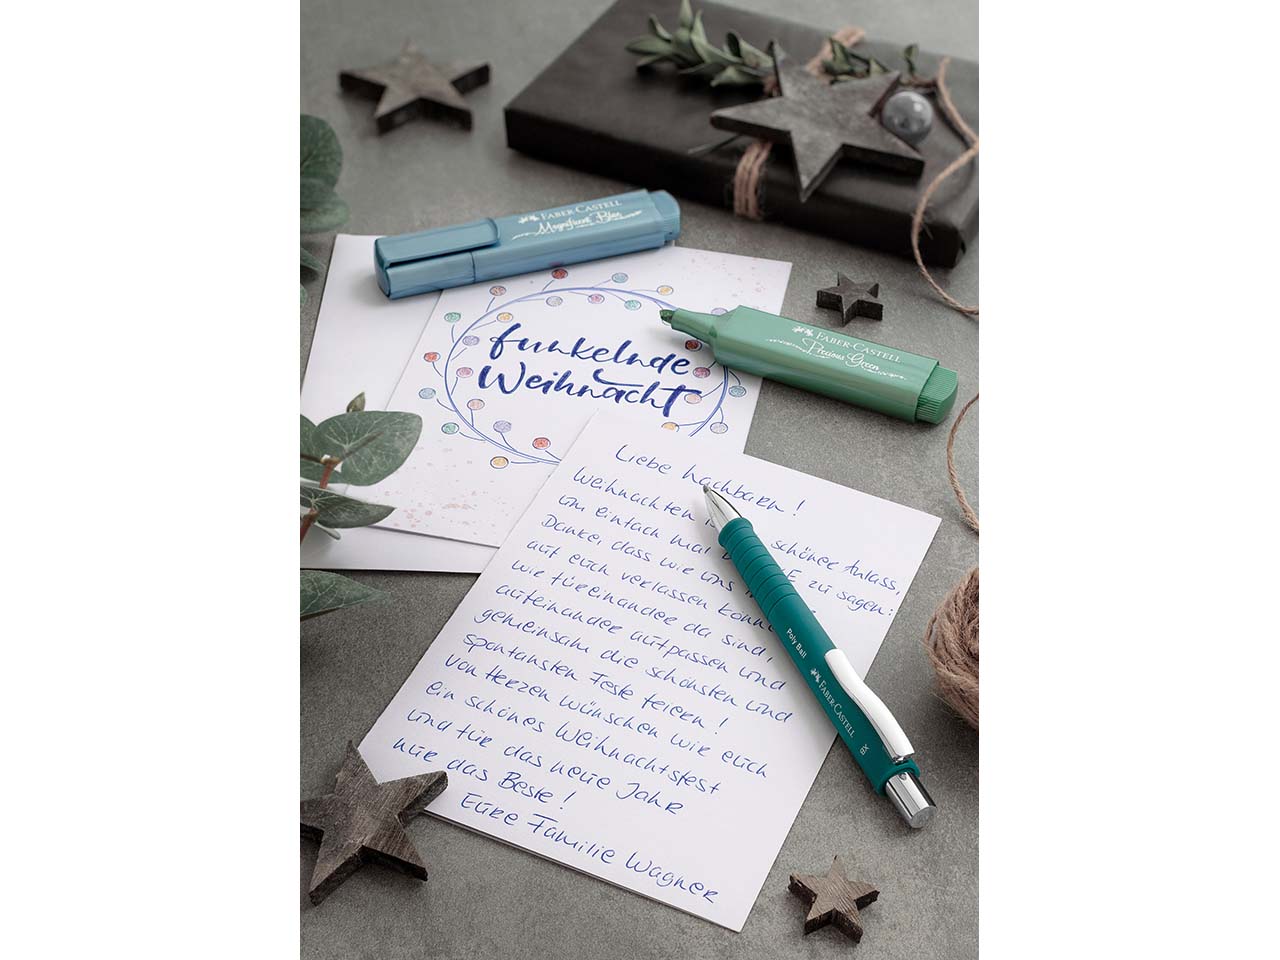 FABER-CASTELL
Magnificent Blue
FABER-CASTELL
Precious Green
funkelnde
Weihnacht
Liebe Nachbarn!
Weihnachten schöner Anlass,
um einfach mal zu sagen:
Danke, dass wir uns
auf euch verlassen
wir füreinander da sind,
aufeinander aufpassen und
gemeinsam die schönsten und
spontansten Feste feiern!
Von Herzen wünschen wir euch
ein schönes Weihnachtsfest
und für das neue Jahr
nur das Beste!
Eure Familie Wagner
Poly Ball
FABER-CASTELL
XB